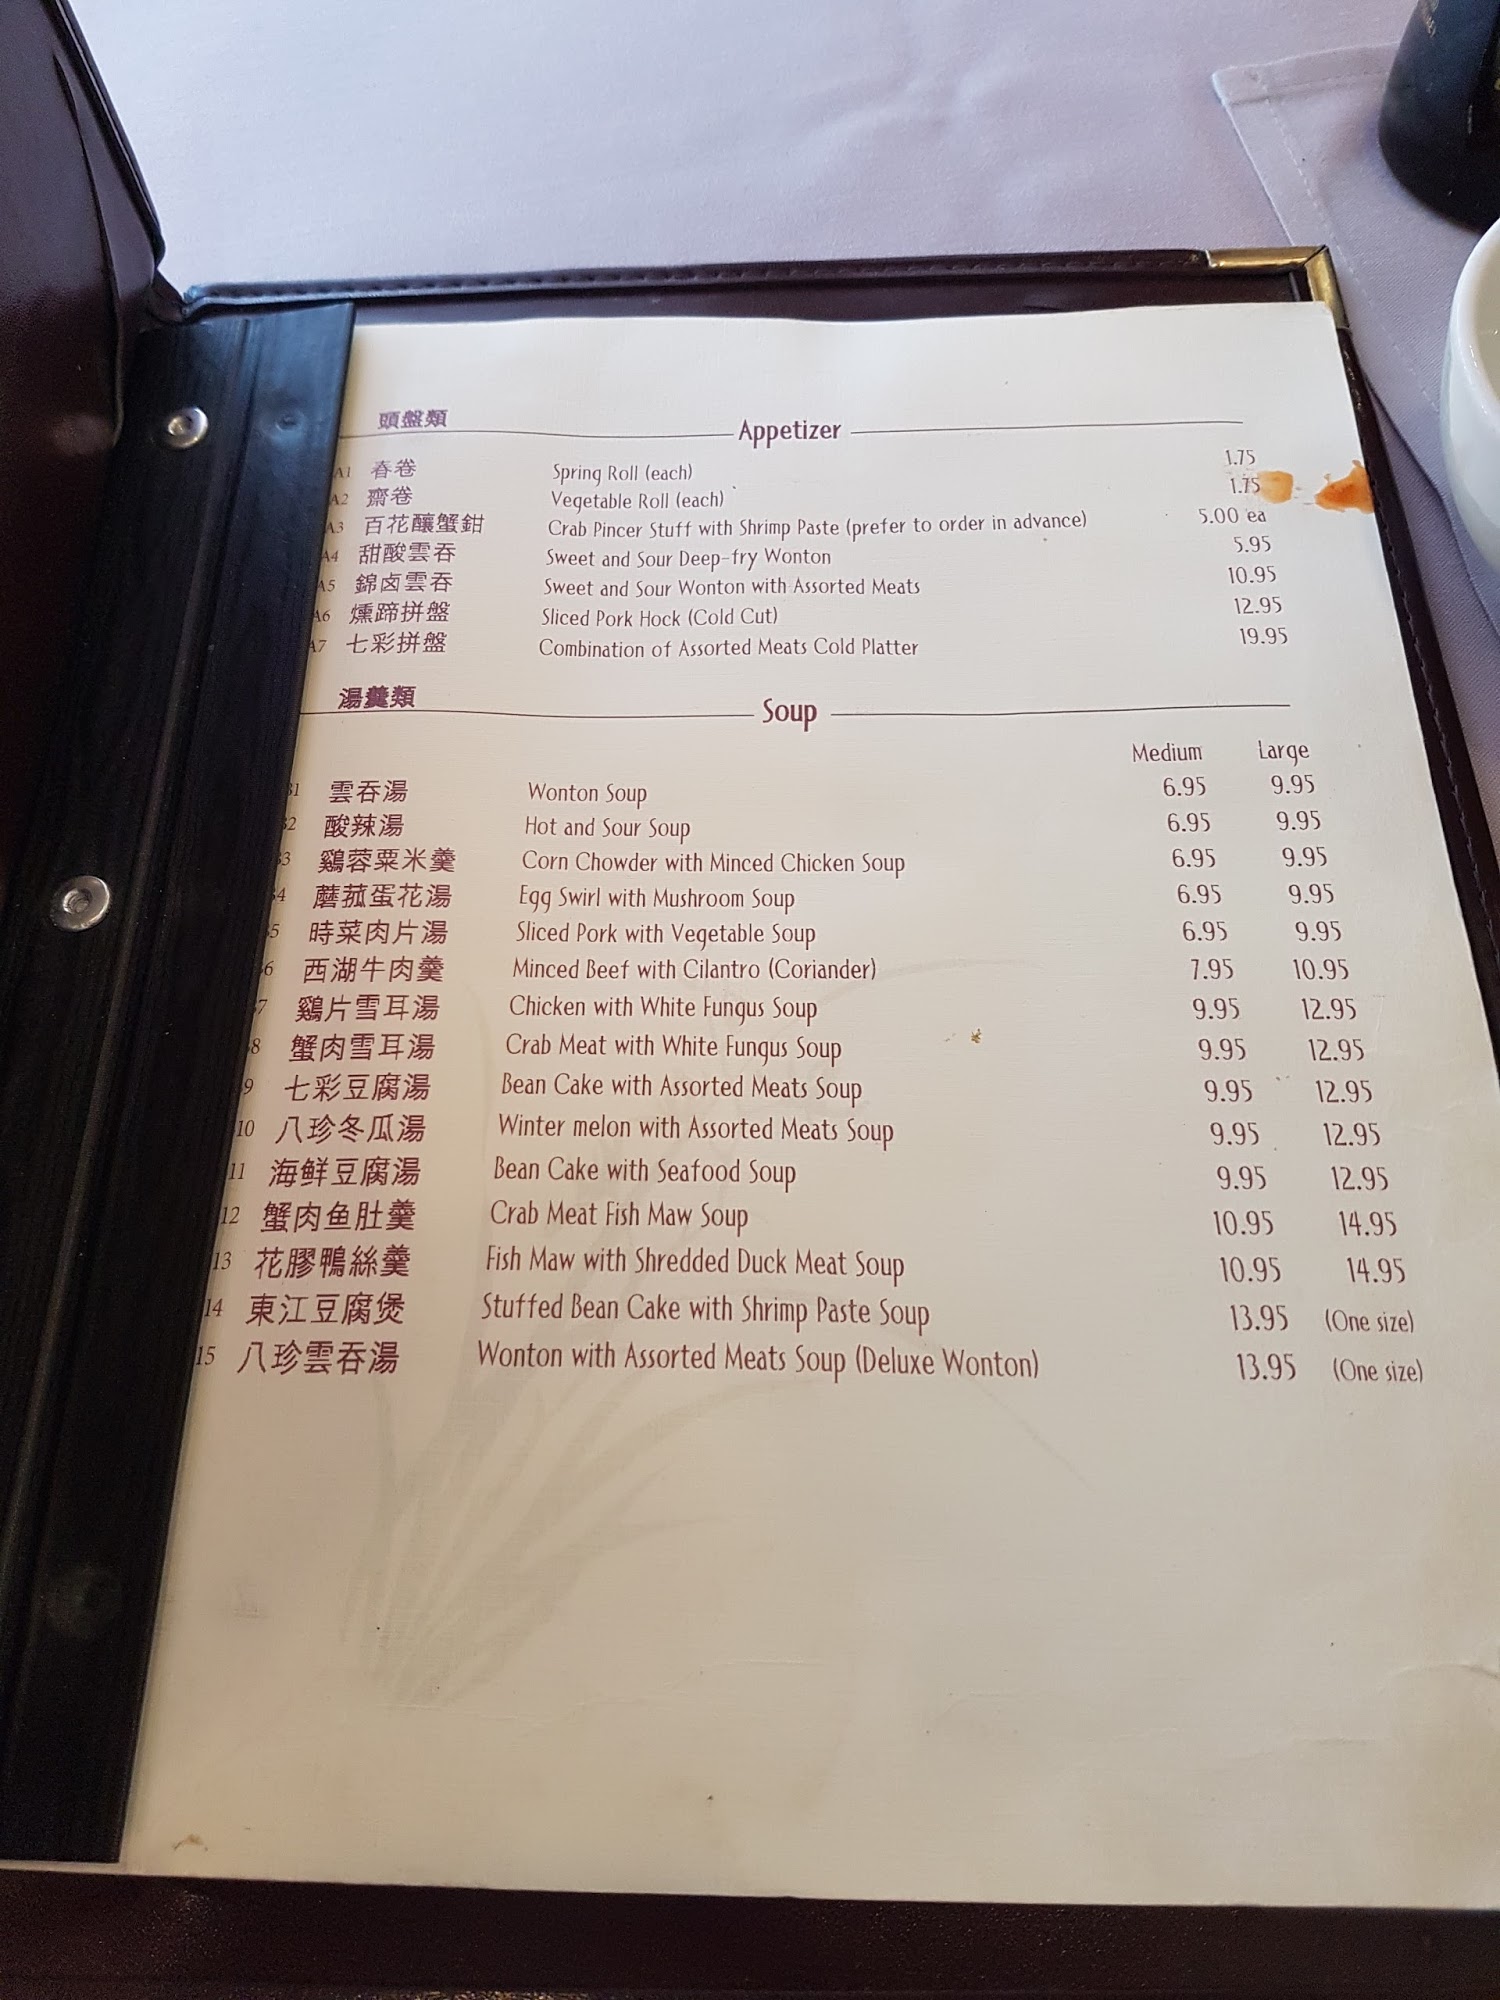 頭盤類 Appetizer
A1 春卷 Spring Roll (each) 1.75
A2 齋卷 Vegetable Roll (each) 1.75
A3 百花釀蟹鉗 Crab Pincer Stuff with Shrimp Paste (prefer to order in advance) 5.00 ea
A4 甜酸雲吞 Sweet and Sour Deep-fry Wonton 5.95
A5 錦卤雲吞 Sweet and Sour Wonton with Assorted Meats 10.95
A6 燻蹄拼盤 Sliced Pork Hock (Cold Cut) 12.95
A7 七彩拼盤 Combination of Assorted Meats Cold Platter 19.95
湯羹類 Soup
Medium Large
1 雲吞湯 Wonton Soup 6.95 9.95
2 酸辣湯 Hot and Sour Soup 6.95 9.95
3 鷄蓉粟米羹 Corn Chowder with Minced Chicken Soup 6.95 9.95
4 蘑菰蛋花湯 Egg Swirl with Mushroom Soup 6.95 9.95
5 時菜肉片湯 Sliced Pork with Vegetable Soup 6.95 9.95
6 西湖牛肉羹 Minced Beef with Cilantro (Coriander) 7.95 10.95
7 鷄片雪耳湯 Chicken with White Fungus Soup 9.95 12.95
8 蟹肉雪耳湯 Crab Meat with White Fungus Soup 9.95 12.95
9 七彩豆腐湯 Bean Cake with Assorted Meats Soup 9.95 12.95
10 八珍冬瓜湯 Winter melon with Assorted Meats Soup 9.95 12.95
11 海鮮豆腐湯 Bean Cake with Seafood Soup 9.95 12.95
12 蟹肉鱼肚羹 Crab Meat Fish Maw Soup 10.95 14.95
13 花膠鴨絲羹 Fish Maw with Shredded Duck Meat Soup 10.95 14.95
14 東江豆腐煲 Stuffed Bean Cake with Shrimp Paste Soup 13.95 (One size)
15 八珍雲吞湯 Wonton with Assorted Meats Soup (Deluxe Wonton) 13.95 (One size)